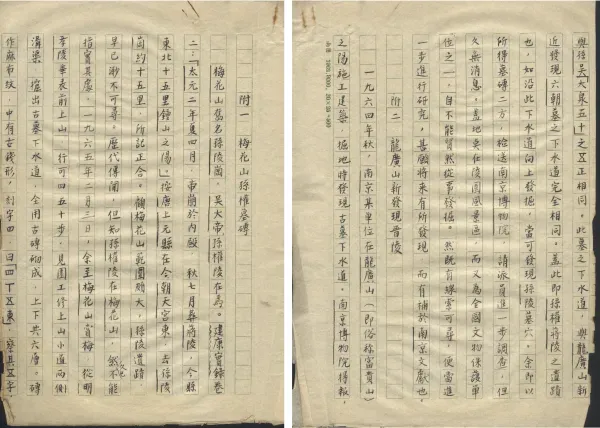 附一　梅花山孫權墓磚
梅花山舊名孫陵崗，吳大帝孫權陵在焉。建康實錄卷
二：「太元二年夏四月，帝崩於內殿，秋七月葬蔣陵，今縣
東北十五里鍾山之陽。」按唐上元縣在今朝天宮東，去孫陵
崗約十五里，所記正合。顧梅花山範圍頗大，孫陵遺蹟，
早已渺不可尋。歷代傳聞，但知孫權陵在梅花山，然不能
指實其處。一九六五年二月三日，余至梅花山賞梅，從明
孝陵華表前上山，行可四五十步，見園工修上山小道兩側
溝渠，掘出古墓下水道，全用古磚砌成，上下共六層。磚
作麻布紋，中有古錢形，刻字四，曰「四丁五東」，察其五字，
與後吳「大泉五十」之五正相同。此墓之下水道，與龍廣山新
近發現六朝墓之下水道完全相同。蓋此即孫權蔣陵之遺蹟
也，如沿此下水道向上發掘，當可發現孫陵墓穴。余即以
所得墓磚二方，檢送南京博物院，請派員進一步調查，但
久無消息。蓋地在陵園風景區，而又為全國文物保護單
位之一，自不能貿然從事發掘。然既有線索可尋，便當進
一步進行研究，甚願將來有所發現，而有補於南京文獻也。
附二　龍廣山新發現晉陵
一九六四年秋，南京某單位在龍廣山（即俗稱富貴山）
之陽施工建築，掘地時發現古墓下水道。南京博物院得報，